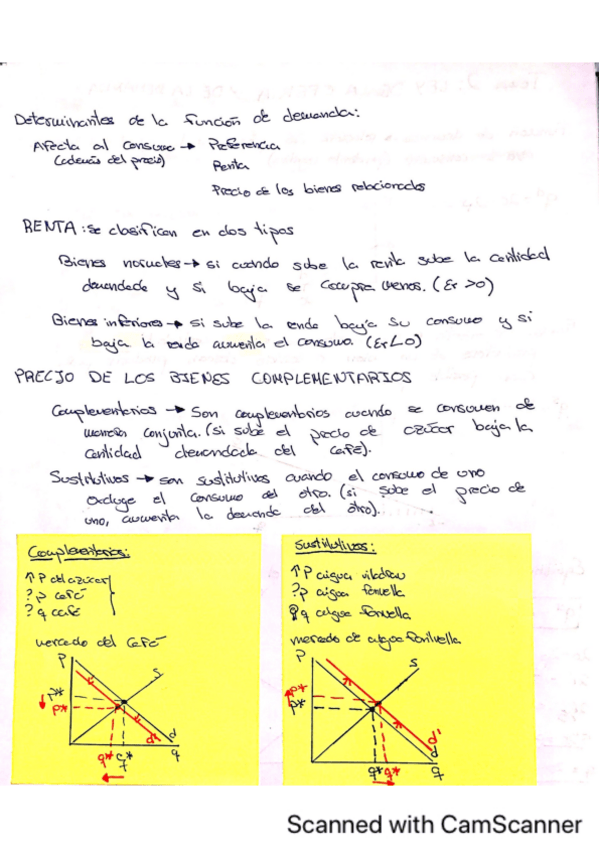 Determinantes de la función de demanda:
Afecta al consumo → Preferencia
(además del precio) Renta
Precio de los bienes relacionados
RENTA: se clasifican en dos tipos
Bienes normales → si cuando sube la renta sube la cantidad
demandada y si baja se compra menos. (Er >0)
Bienes inferiores → si sube la renta baja su consumo y si
baja la renta aumenta el consumo. (Er<0)
PRECIO DE LOS BIENES COMPLEMENTARIOS
Complementarios → Son complementarios cuando se consumen de
manera conjunta. (si sube el precio de azúcar baja la
cantidad demandada del café).
Sustitutivos → son sustitutivos cuando el consumo de uno
excluye el consumo del otro. (si sube el precio de
uno, aumenta la demanda del otro).
Complementarios:
↑ P del azúcar
? p café
? q café
mercado del café
P
S
p*
p*
d'
d
q* q*
q
Sustitutivos:
↑ P aigua viladrau
? p aigua fonvella
? q aigua fonvella
mercado de aigua fontvella
P
S
p*
p*
d'
d
q* q*
q
Scanned with CamScanner